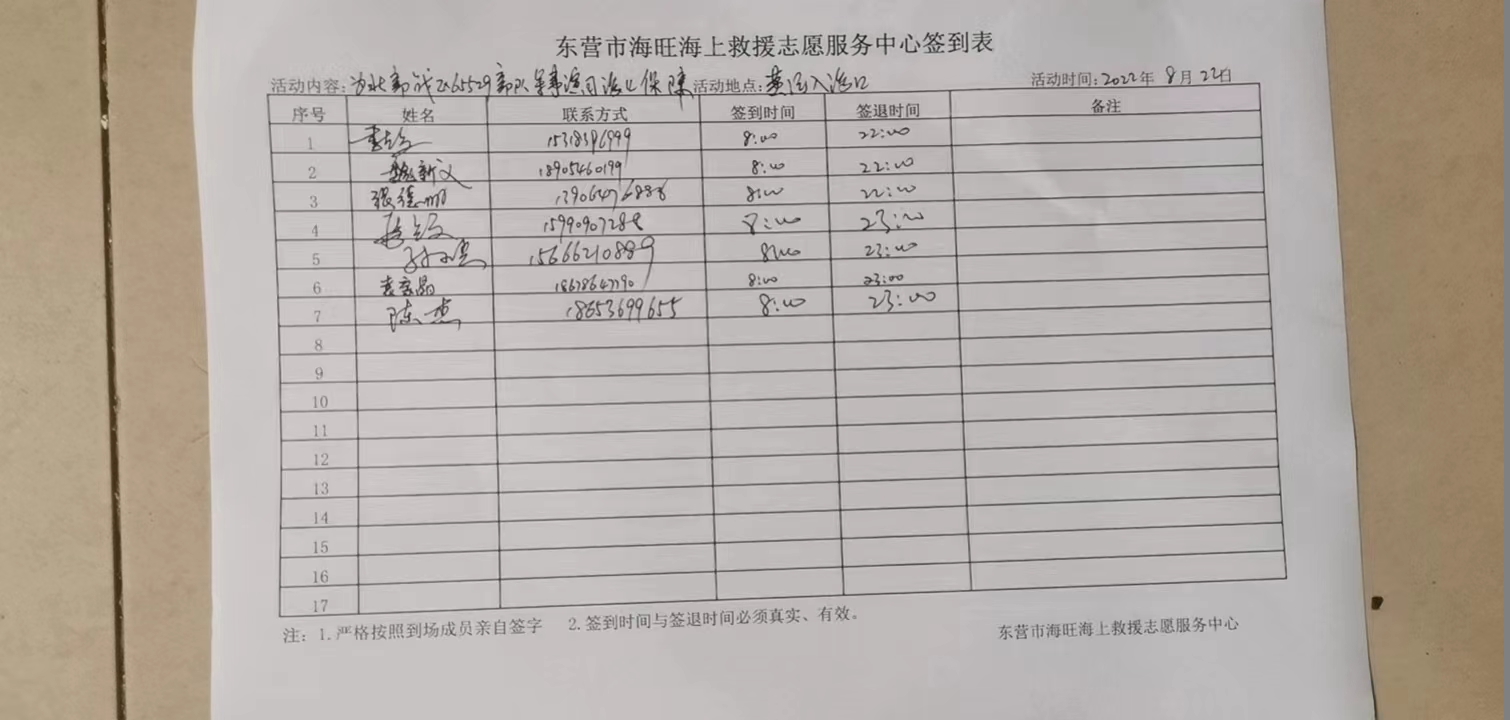 东营市海旺海上救援志愿服务中心签到表
活动内容: 部战区65529部队军事演习海上保障 活动地点: 黄河入海口 活动时间: 2022年 8月 22日
序号 姓名 联系方式 签到时间 签退时间 备注
1 8:00 22:00
2 新义 18905460199 8:00 22:00
3 张德明 13906476888 8:00 22:00
4 15990907288 8:00 23:00
5 15666210889 8:00 23:00
6 袁彦晶 8:00 23:00
7 陈杰 18653699655 8:00 23:00
8
9
10
11
12
13
14
15
16
17
注: 1.严格按照到场成员亲自签字 2.签到时间与签退时间必须真实、有效。
东营市海旺海上救援志愿服务中心